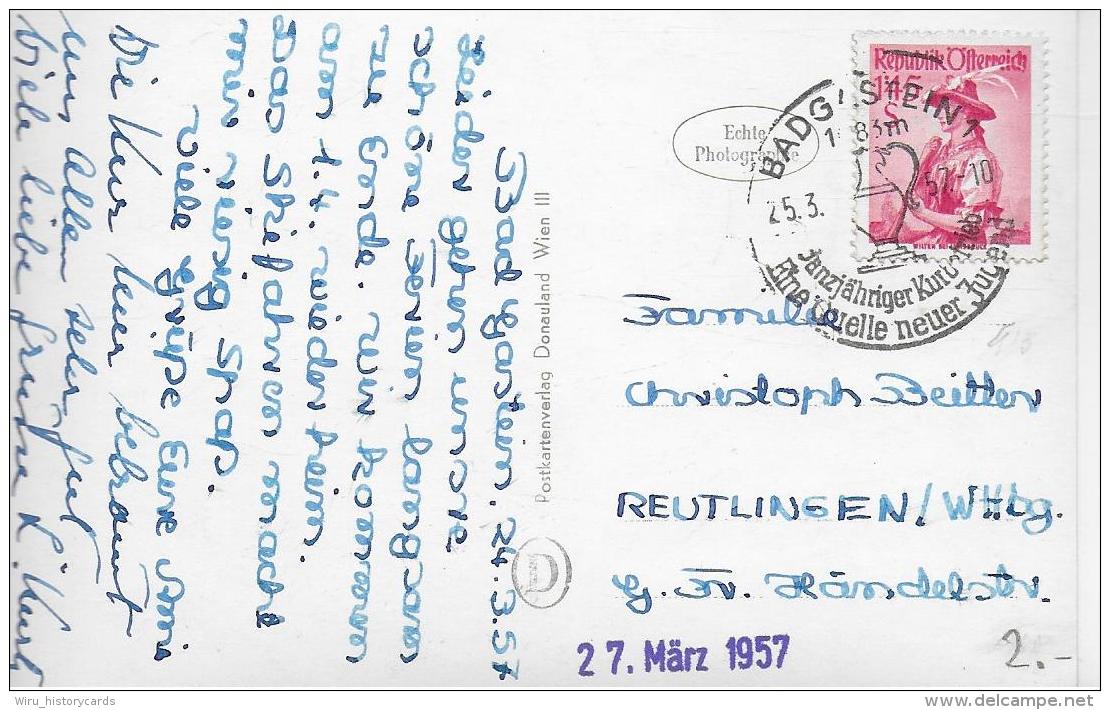 Bad Gastein. 24.3.57
Leider gehen unsre
schöne Ferien langsam
zu Ende. wir kommen
am 1.4. wieder heim.
Das Skifahren macht
mir riesig Spaß.
Viele Grüße Eure
Die Kur hier bekommt
uns Allen sehr gut
Viele liebe Grüße
Postkartenverlag Donauland Wien III
D
Echte
Photographie
Republik Österreich
1'45
S
BADGASTEIN 1
1083m
25.3. 57-10
Ganzjähriger Kurbetrieb
Eine Quelle neuer Jugend
Familie
Christoph Beitter
REUTLINGEN/Wttbg.
G. Fr. Händelstr.
27. März 1957
2.-
Wiru_historycards
delcampe.net